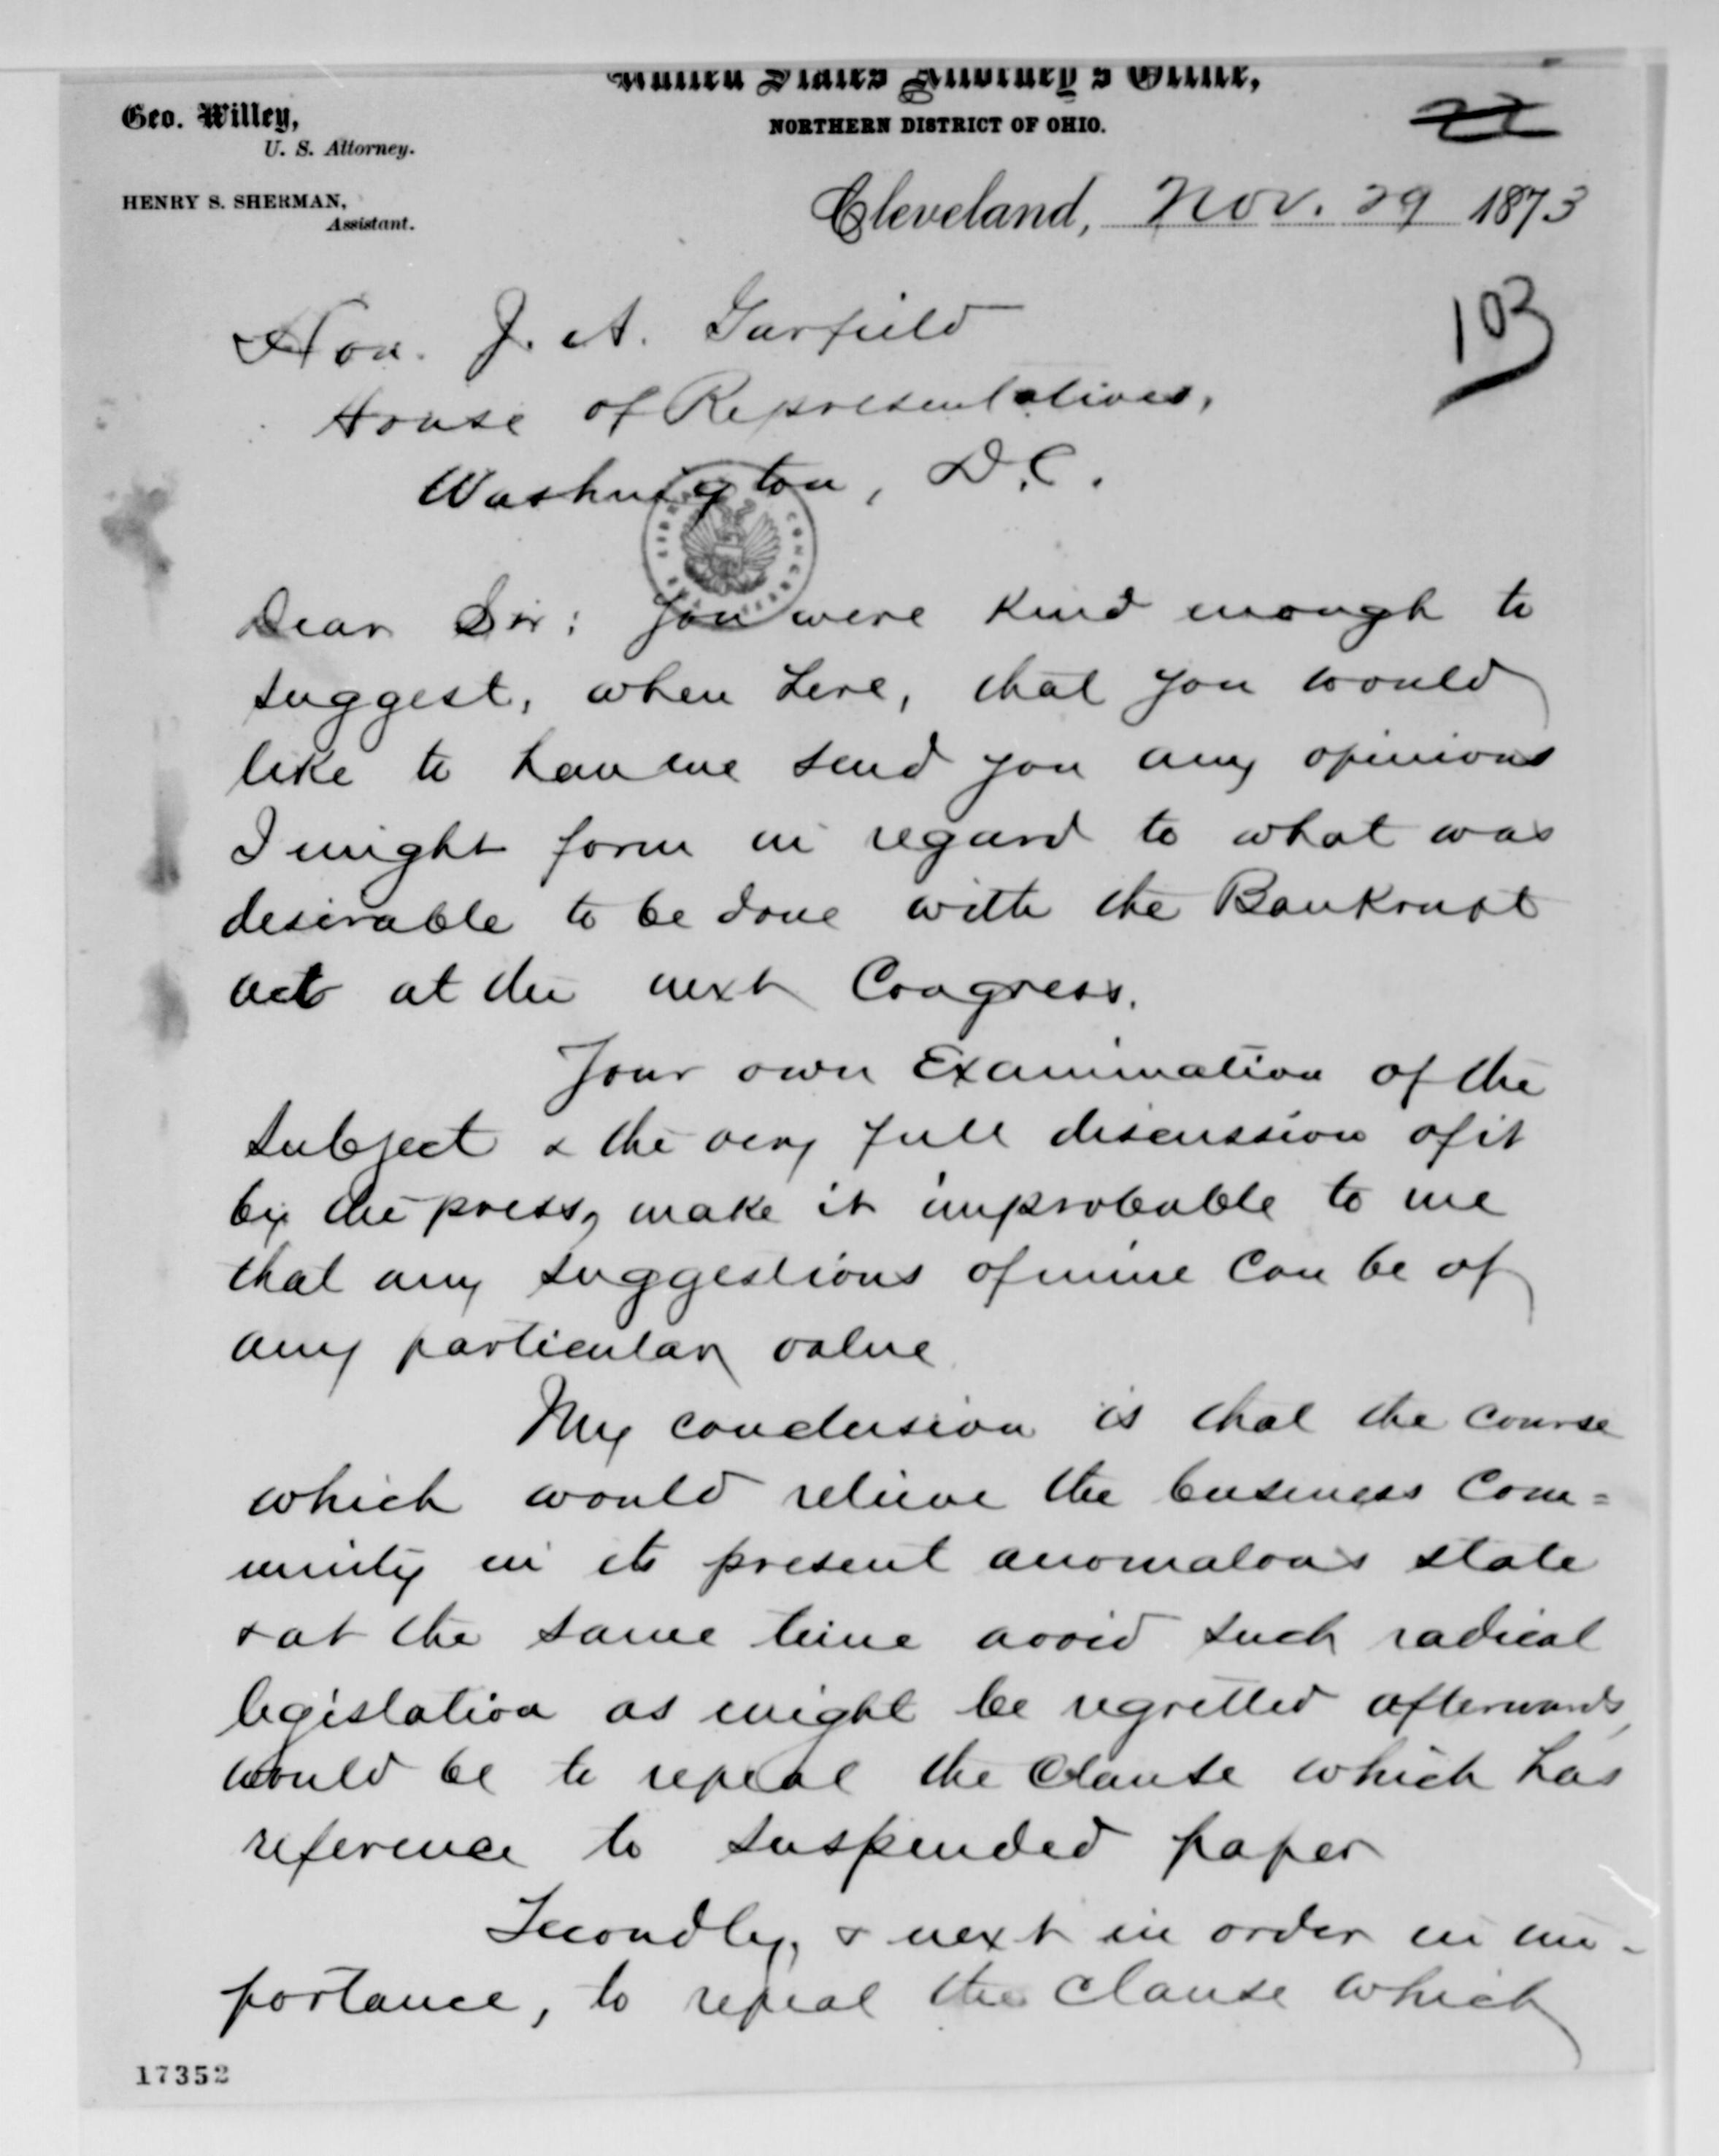 United States Attorney's Office,
NORTHERN DISTRICT OF OHIO.
Geo. Willey,
U. S. Attorney.
HENRY S. SHERMAN,
Assistant.
22
Cleveland, Nov. 29 1873
103
Hon. J. A. Garfield
House of Representatives,
Washington, D.C.
LIBRARY CONGRESS
Dear Sir: You were kind enough to
suggest, when here, that you would
like to have me send you any opinions
I might form in regard to what was
desirable to be done with the Bankrupt
act at the next Congress.
Your own Examination of the
subject & the very full discussion of it
by the press, make it improbable to me
that any suggestions of mine can be of
any particular value
My conclusion is that the course
which would relieve the business com=
munity in its present anomalous state
& at the same time avoid such radical
legislation as might be regretted afterwards,
would be to repeal the clause which has
reference to suspended paper
Secondly, & next in order in im-
portance, to repeal the clause which
17352